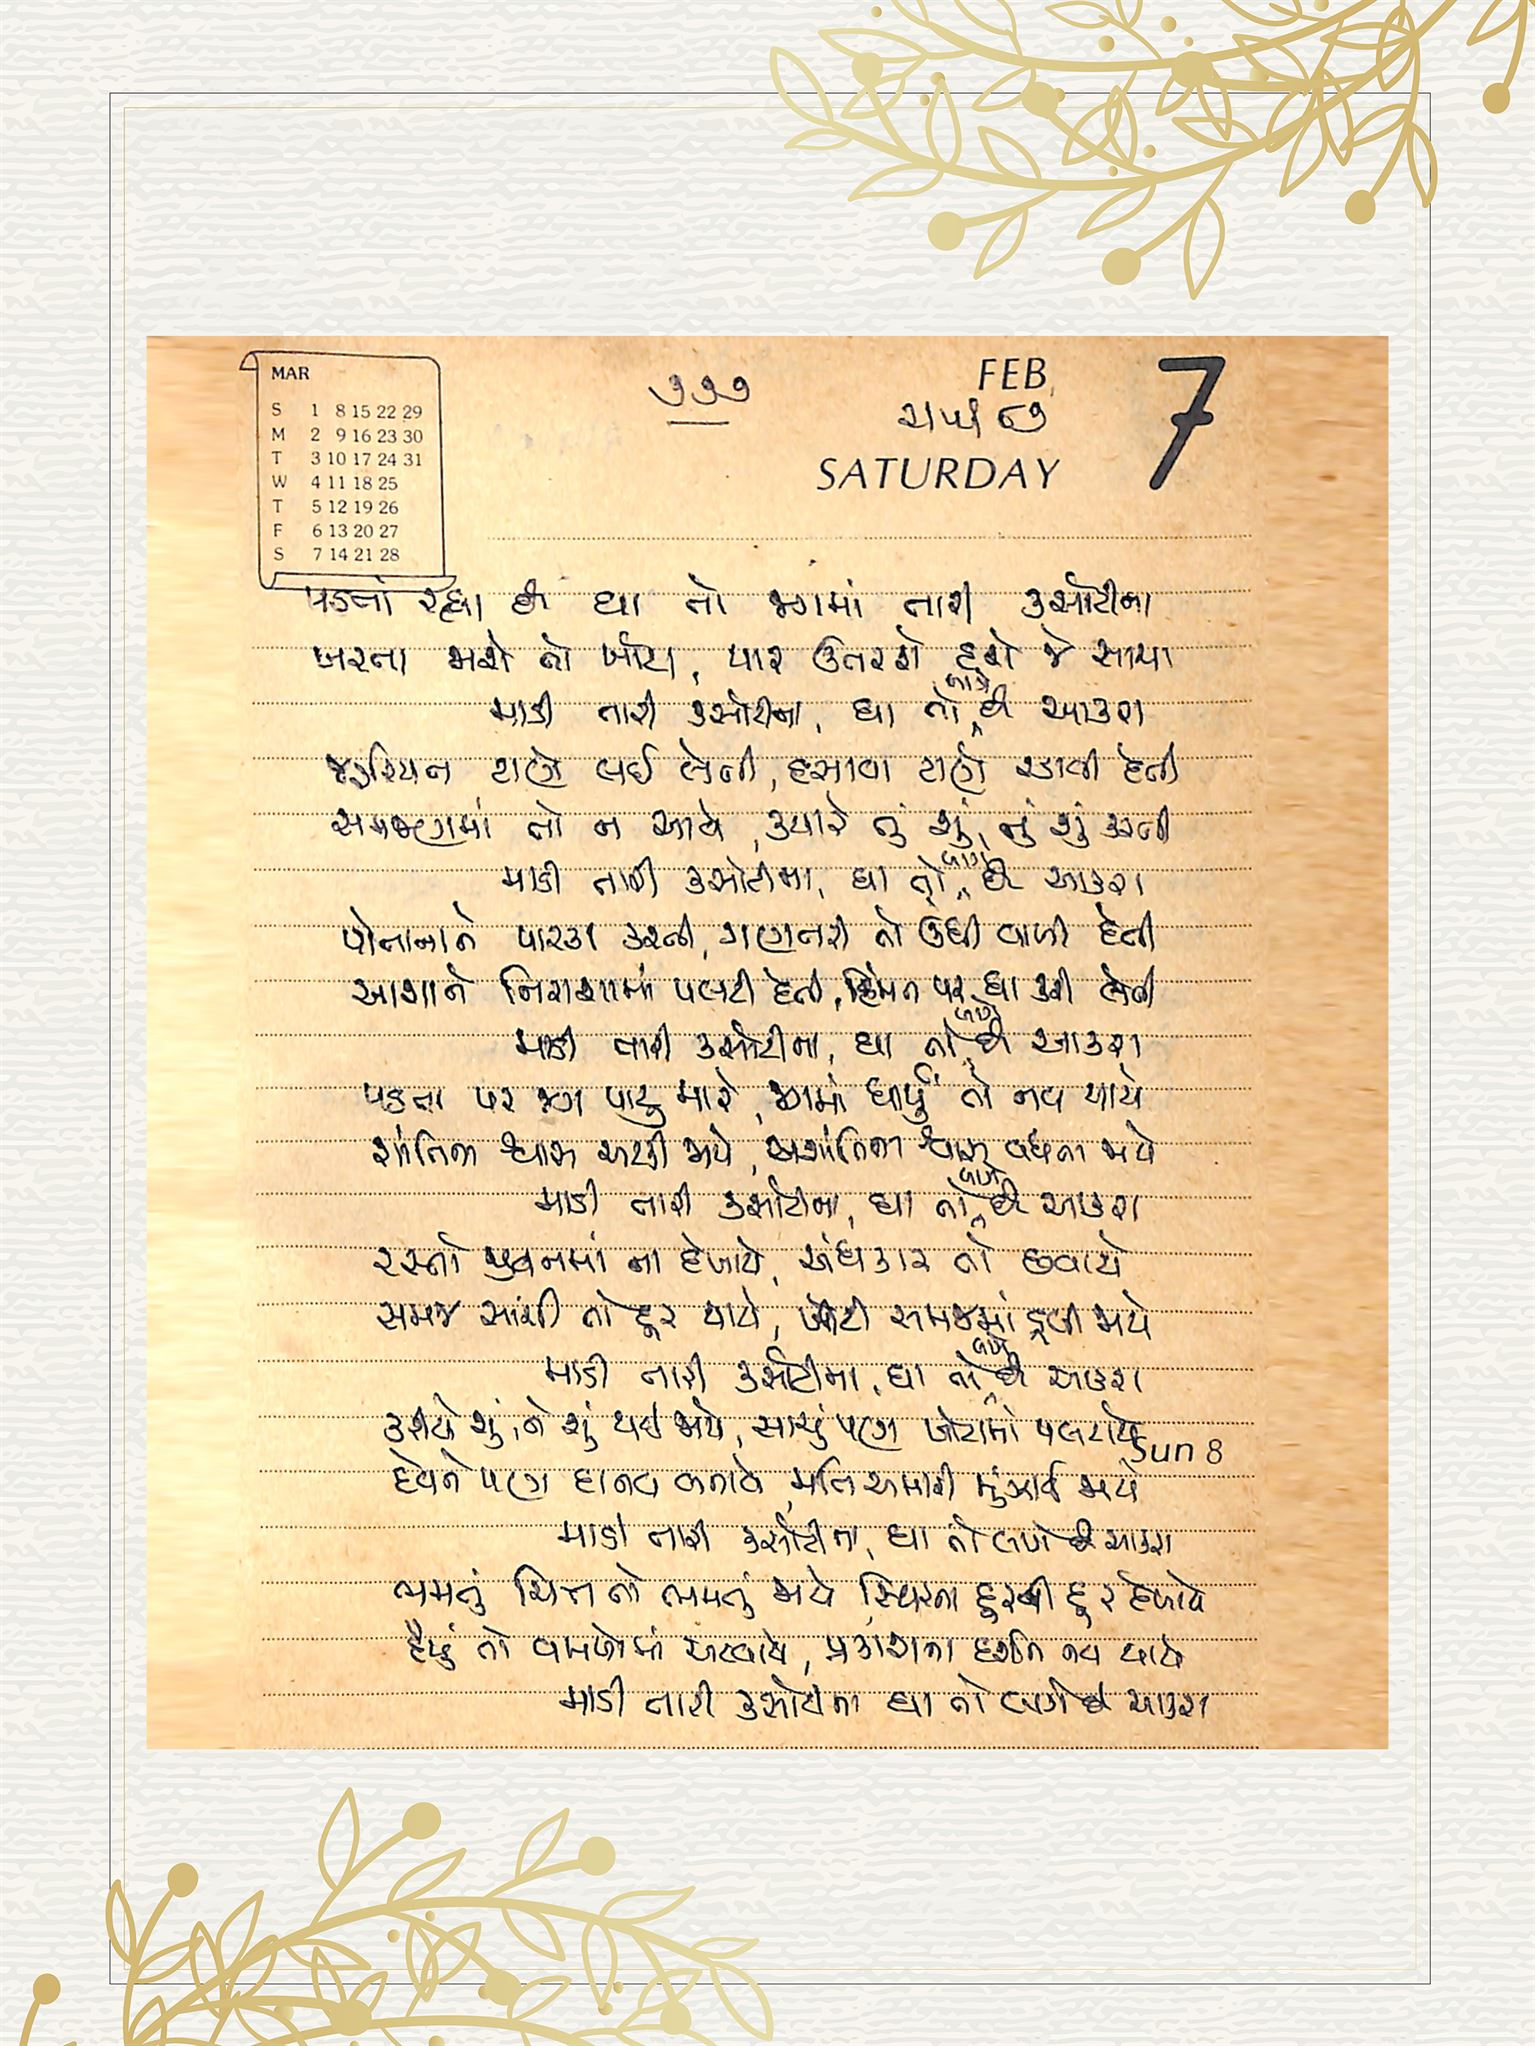 MAR
S 1 8 15 22 29
M 2 9 16 23 30
T 3 10 17 24 31
W 4 11 18 25
T 5 12 19 26
F 6 13 20 27
S 7 14 21 28
૭૭૭
FEB
7
SATURDAY
પડતાં રહ્યા છે ઘા તો જગમાં તારી કસોટીના
ખરતા જાશે તો ખોટા, પાર ઉતરશે હશે જે સાચા
માડી તારી કસોટીના, ઘા તો લાગે છે આકરા
જકરિયન રાણો લઈ લેતી, હસાવવા રાણો રડાવી દેતી
સમજણમાં તો ન આવે, ક્યારે તું શું, નું શું કરતી
માડી તારી કસોટીના, ઘા તો લાગે છે આકરા
પોતાનાને પારકા કરતી, ગણતરી તો ઊંધી વાળી દેતી
આશાને નિરાશામાં પલટી દેતી, હિંમત પર ઘા કરી લેતી
માડી તારી કસોટીના, ઘા તો લાગે છે આકરા
પડતા પર જગ પાટુ મારે, જગમાં ધાર્યું તો નવ થાયે
શાંતિના શ્વાસ અટકી જાયે, અશાંતિના શ્વાસ વધતા જાયે
માડી તારી કસોટીના, ઘા તો લાગે છે આકરા
રસ્તો જીવનમાં ના દેખાયે, અંધકાર તો છવાયે
સમજ સાચી તો દૂર થાયે, ખોટી સમજમાં ડૂબી જાયે
માડી તારી કસોટીના, ઘા તો લાગે છે આકરા
કરીયે શું, ને શું થઈ જાયે, સાચું પણ ખોટામાં પલટાયે
Sun 8
દેવને પણ દાનવ બનાવે, મતિ અમારી મુંઝાઈ જાયે
માડી તારી કસોટીના, ઘા તો લાગે છે આકરા
ભમતું ચિત્ત તો ભમતું જાયે, સ્થિરતા દૂરથી દૂર દેખાયે
હૈયું તો વમળોમાં અટવાયે, પ્રકાશના દર્શન નવ થાયે
માડી તારી કસોટીના ઘા તો લાગે છે આકરા